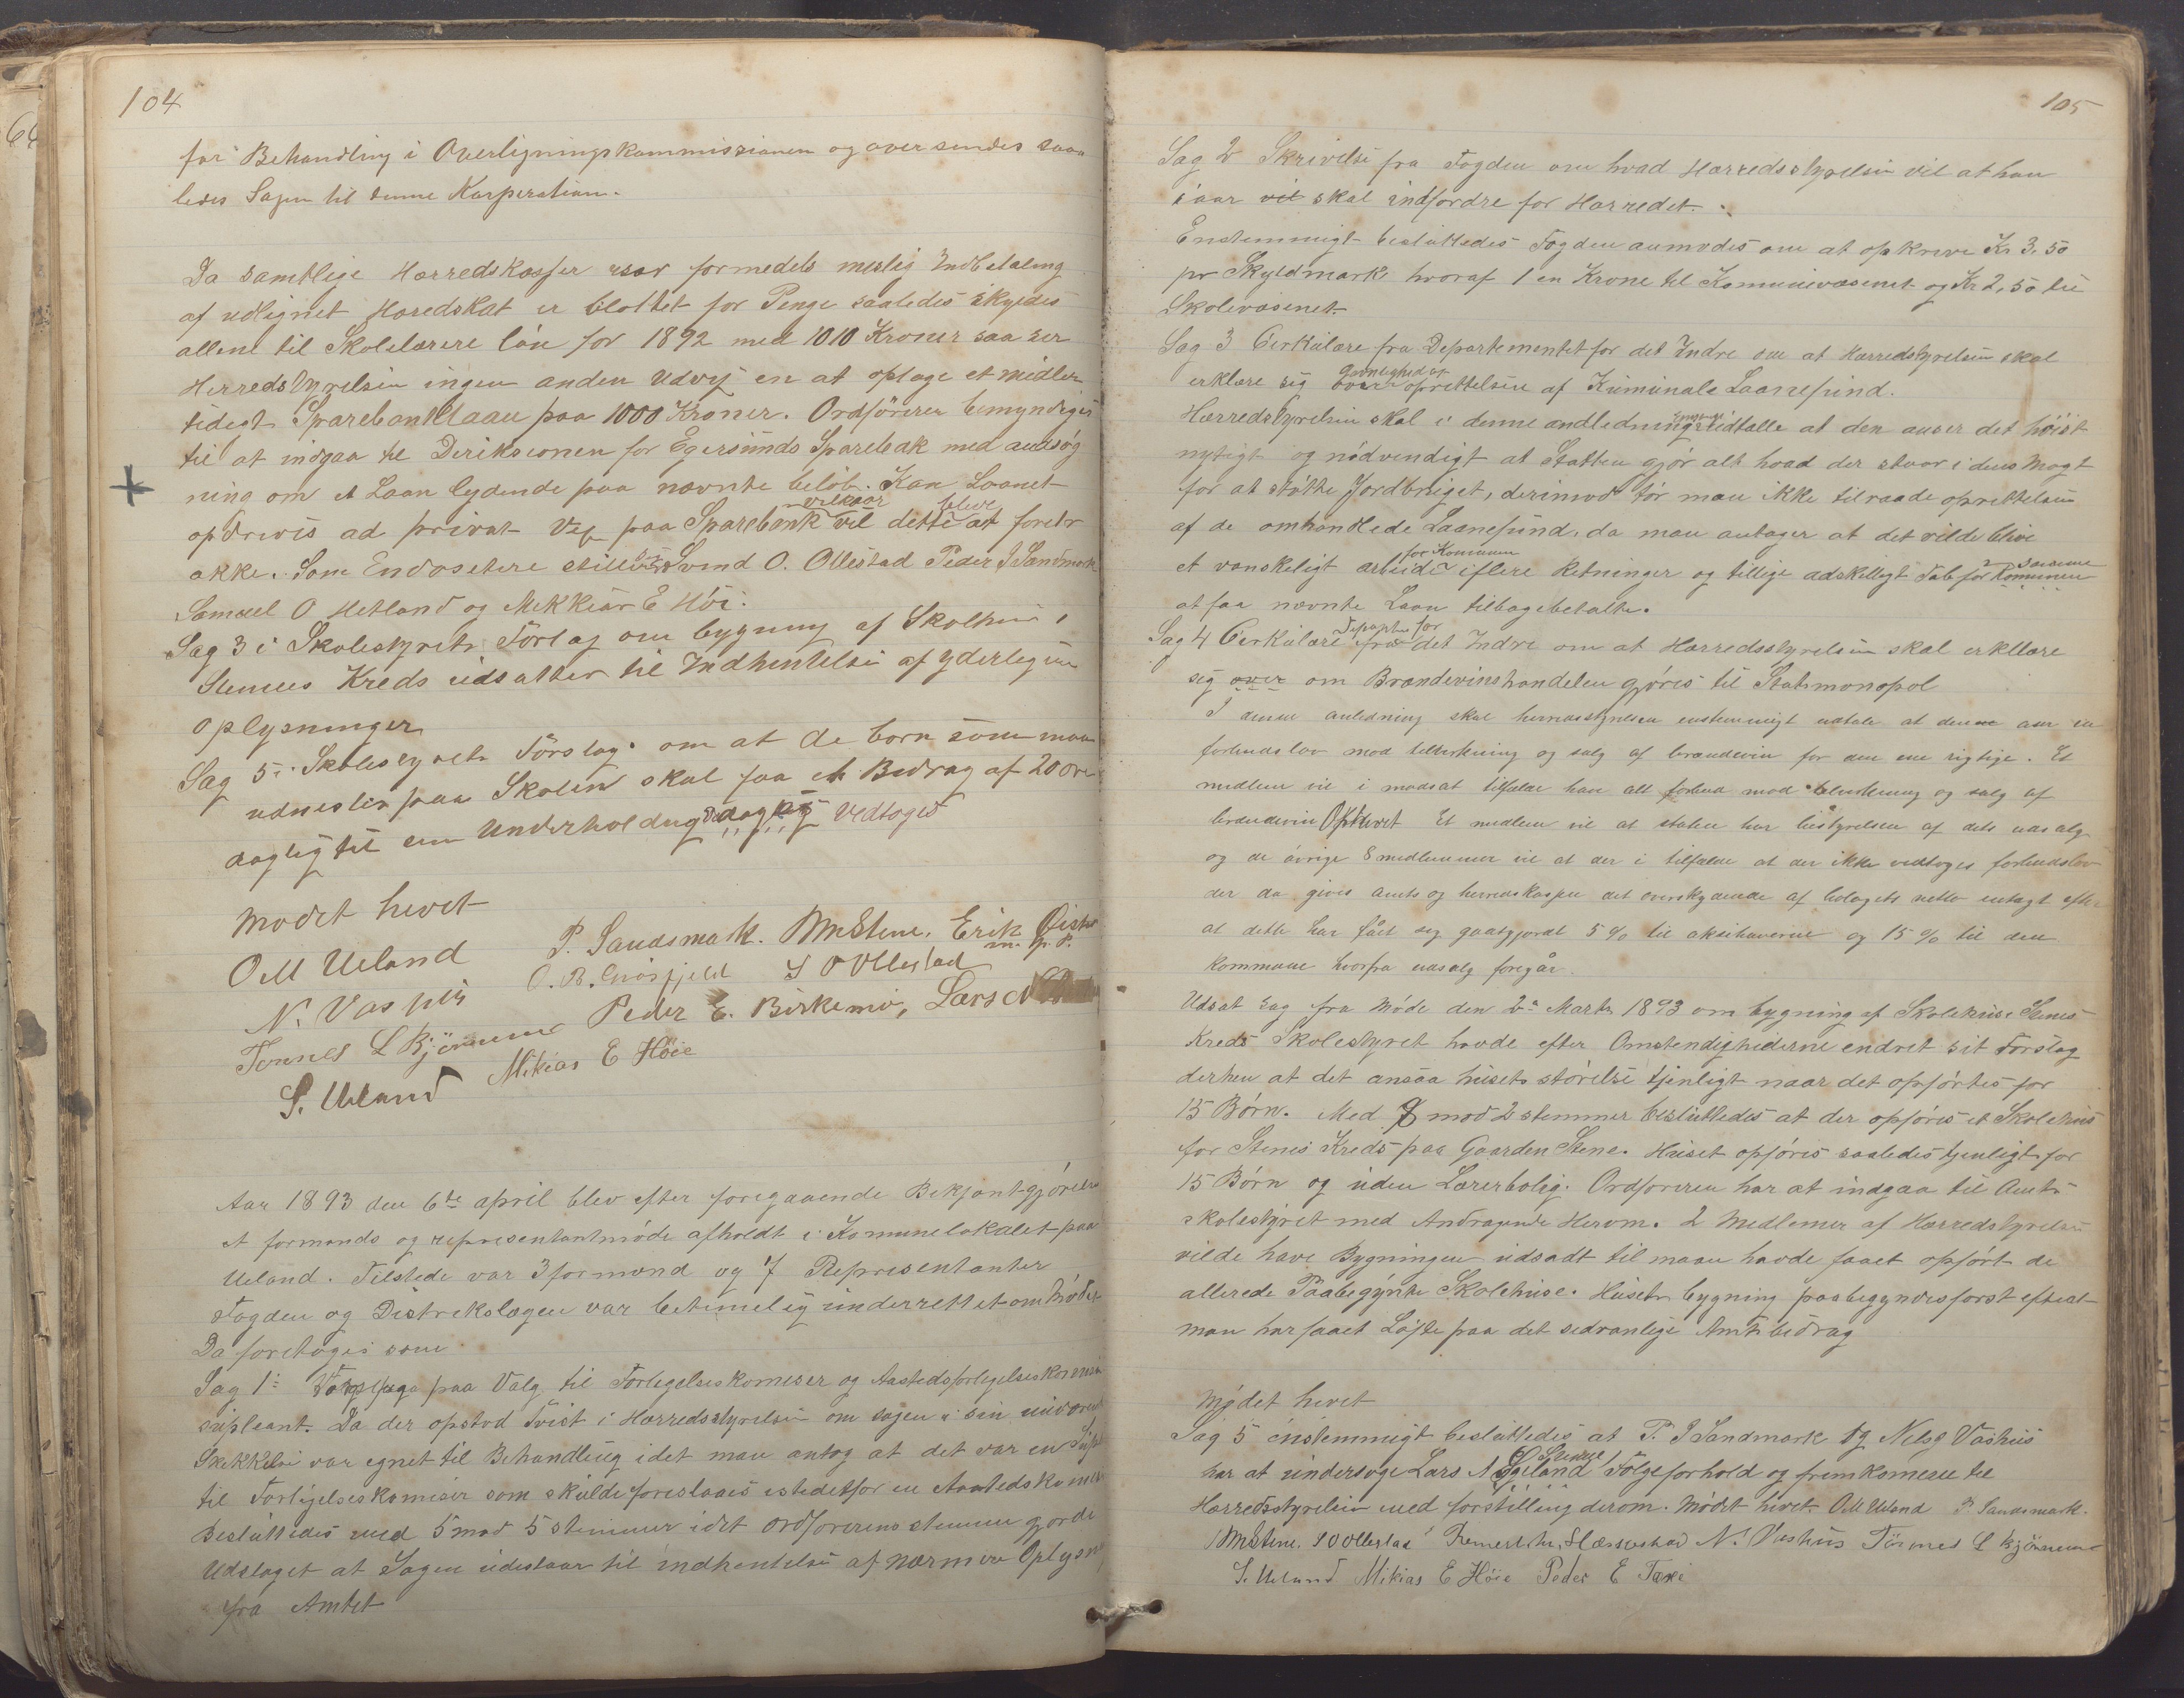 104
for Behandling i Overligningskommissionen og over sendes saa
ledes Sagen til denne Korperation.
Da samtlige Herredskasser formedels meslig Indbetaling
af udlignet Heredskat er blottet for Penge saaledes skyedes
allene til Skolelærere lön for 1892 med 1010 Kroner saa ser
Herredstyrelsen ingen anden Udvej en at optage et midler
tidigt Sparebanklaan paa 1000 Kroner. Ordföreren bemyndiges
til at indgaa til Dirikscionen for Egersunds Sparebak med ansög
ning om et Laan lydende paa nævnte belöb. Kan Laanet
opdrives ad privat Vej paa Sparebank vilkaar vil dette bleve at foretr
ække. Som Endosetere stilles Svend O. Ollestad Peder J Sandmark
Samuel O Hetland og Mekkias E Höi.
Sag 3 i Skolestyrets Förslag om bygning af Skolhus i
Stenes Kreds udsatter til Indhentelse af yderligere
oplysninger
Sag 5. Skolestyrets Förslag om at de born som maa
udnester paa Skolen skal faa et Bidrag af 20 öre
daglig til em Underholdug daglig Vedtoges
Modet hevet
O M Ueland P. Sandsmark. MStene. Erik
m. f. P.
N. Vashus O. B. Grösfjeld S O Ollestad
Tönnes L Bjönnum Peder E. Birkemo, Lars N
S. Ueland Mikias E Höie
Aar 1893 den 6te april blev efter foregaaende Bekjantgjörelse
et formands og representantmöde afholdt i Komunelokalet paa
Ueland. Tilstede var 3 formænd og 7 Representanter
Fogden og Distrikslægen var betimelig underrettet om Mödet
Da foretoges som
Sag 1: paa Valg til Forligelseskomeser og Aastedsforligelseskomesi
supleant. Da der opstod Tvist i Herredsstyrelsen om sagen i sin nuværende
Skikkelse var egnet til Behandling idet man antog at det var en Supl
til Forligelseskomiser som skulde foreslaaes istedetfor en Aastedskomis
Besluttedes med 5 mod 5 stemmer idet ordförerens stemme gjorde
Udslaget at Sagen udestaar til indhentelse af nærmere Oplysn
fra Amtet
105
Sag 2 Skrivelse fra Fogden om hvad Herredsstyrelsen vil at han
i aar vil skal indfordre for Herredet.
Enstemmigt besluttedes Fogden anmodes om at opkreve Kr 3,50
pr Skyldmark hvoraf 1 en Krone til Komunevæsenet og Kr 2,50 til
Skolevæsenet
Sag 3 Cerkulære fra Departementet for det Indre om at Herredstyrelsen skal
erklære sig over oprettelsen af Kumunale Laanefund.
Herredstyrelsen skal i denne andledning udtalle at den anser det höist
nytigt og nödvendigt at Staten gjör alt hvad der staar i dens Magt
for at stötte Jordbruget, derimod tör man ikke tilraade oprettelsen
af de omhandlede Laanefund, da man antager at det vilde blive
et vanskeligt arbeide for Komunen i flere Retninger og tillige adskilligt Tab for Komunen samme
at faa nævnte Laan tilbagebetalte.
Sag 4 Cerkulære fra Depaptm for det Indre om at Herredsstyrelsen skal erkllære
sig over om Brændevinshandelen gjöres til Statsmonopol
I denne anledning skal herredsstyrelsen enstemmigt udtale at denne anser en
forbudslov mod tilvirkning og salg af brændevin for den ene rigtige. Et
medlem vil i modsat tilfælde have alt forbud mod tilvirkning og salg af
brændevin Ophevet Et medlem vil at staten har bestyrelsen af dets udsalg
og de övrige 8 medlemmer vil at der i tilfælde at der ikke vedtoges forbudslov
der da gives Amts og herredskassen det overskydende af bolagets netto indtægt efter
at dette har fået seg godtgjordt 5 % til aksihaverne og 15 % til den
kommune hvorfra udsalg foregår.
Udsat sag fra Möde den 2. Marts 1893 om bygning af Skolehus i Stenes
Kreds Skolestyret havde efter Omstendighederne endret sit Forslag
derhen at det ansaa husets störelse tjenligt naar det opförtes for
15 Börn. Med 8 mod 2 stemmer besluttedes at der opföres et Skolehus
for Stenes Kreds paa Gaarden Stene. Huset opföres saaledes tjenligt for
15 Börn og uden Lærerbolig. Ordföreren har at indgaa til Amts
skolestyret med Andragende Herom. 2 Medlemer af Herredstyrelsen
vilde have Bygningen udsadt til maan havde faaet opfört de
allerede Paabegynte Skolehuse. Husets bygning paabegyndes forst efterat
man har faaet Löfte paa det sedvanlige Amts bidrag
Mödet hevet
Sag 5 enstemmigt besluttedes at P. J Sandmark og Nels G Vashus
har at undersöge Lars N Ögeland Fölgeforhold og fremkomme til
Herredsstyrelsen med forstilling derom. Mödet hevet. O M Ueland P Sandsmark.
MStene. S O Ollestad N. Vashus Tönnes L Bjönnum
S. Ueland Mikias E Höie Peder E